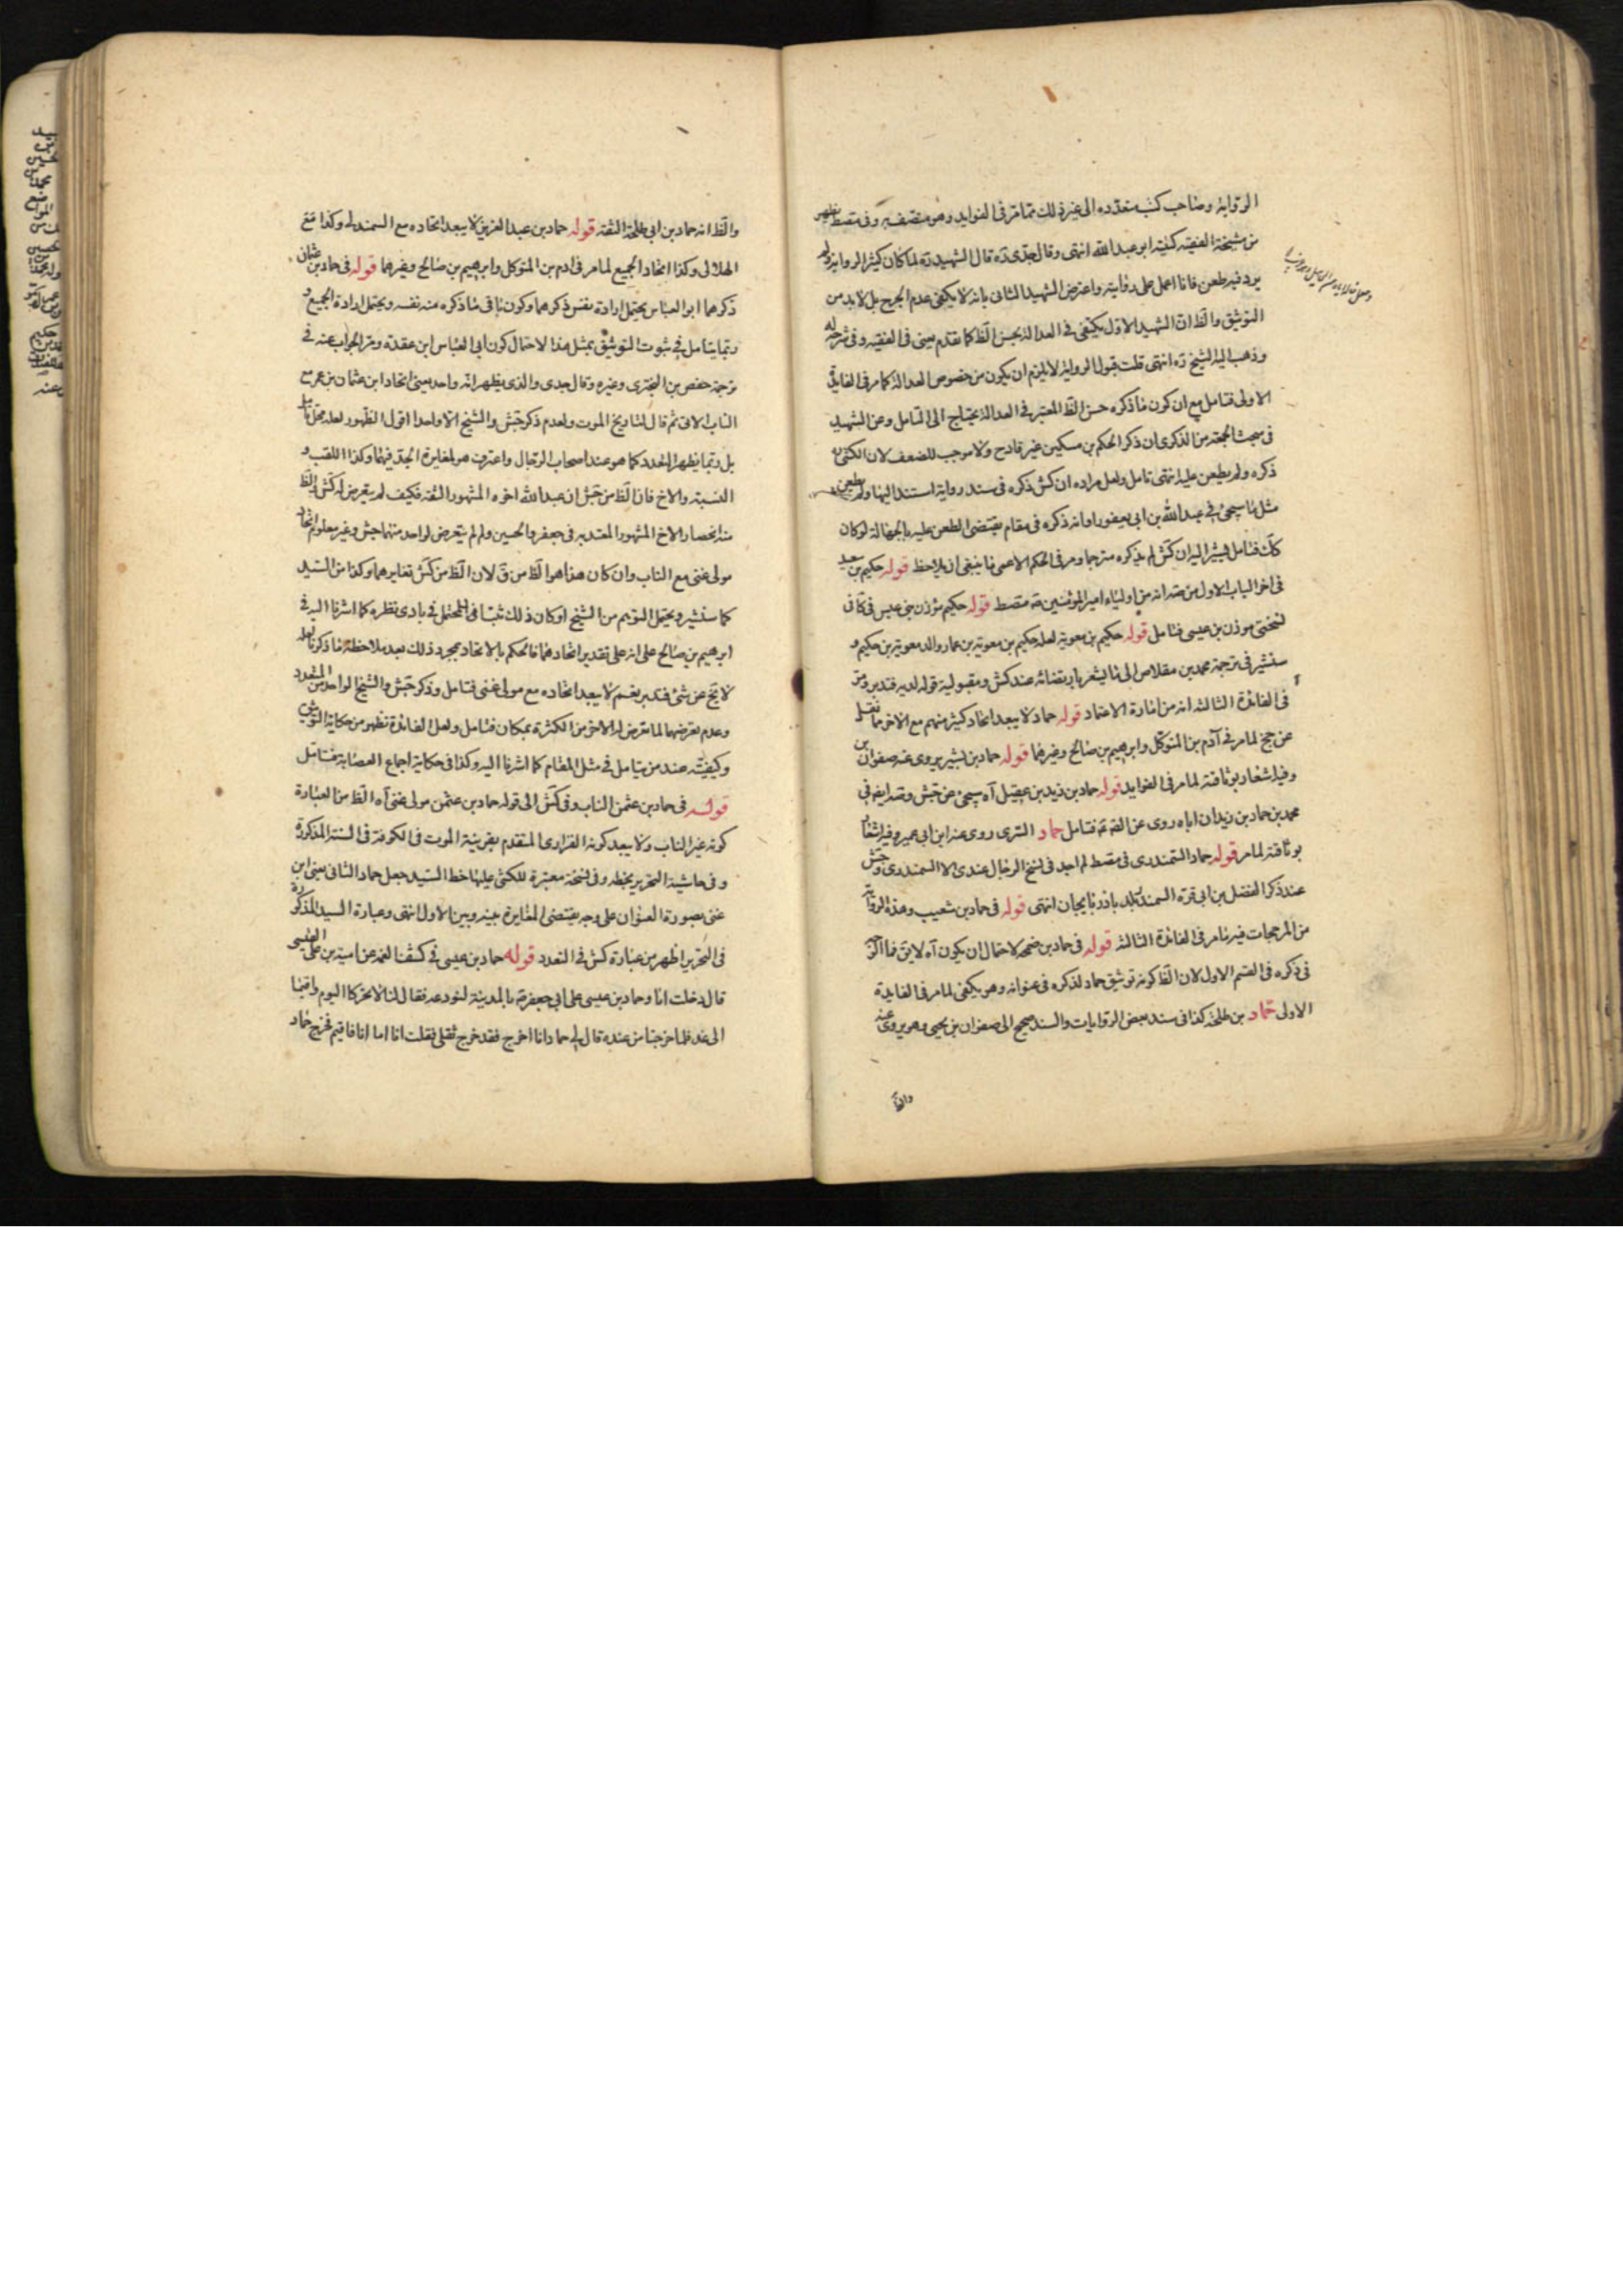 الرواية وصاحب كتب متعدده الى غير ذلك مما مر فى الفوايد وهو متصف به وفى مقصط يظهر
من مشيخة الفقيه كنيته ابو عبد الله انتهى وقال جدى ره قال الشهيد ره لما كان كثير الرواية ولم
يرد فيه طعن فانا اعمل على روايته واعترض الشهيد الثانى بانه لا يكفى عدم الجرح بل لا بد من
التوثيق والظ ان الشهيد الاول يكتفى فى العدالة بحسن الظ كما تقدم يعنى فى الفقيه وفى شرحه له
وذهب اليه الشيخ ره انتهى قلت قبول الرواية لا يلزم ان يكون من خصوص العدالة كما مر فى الفايدة
الاولى فتامل مع ان كون ما ذكره حسن الظ المعتبر فى العدالة يحتاج الى التامل وعن الشهيد
فى مبحث الجمعه من الذكرى ان ذكر الحكم بن مسكين غير قادح ولا موجب للضعف لان الكشى
ذكره ولم يطعن عليه انتهى تامل ولعل مراده ان كش ذكره فى سند رواية استند اليها ولم يطعن
مثل ما سيجئ فى عبد الله بن ابى يعفور اوانه ذكره فى مقام يقتضى الطعن عليه بالجهالة لو كان
كك فتامل يشير اليه ان كش لم يذكره مترجما ومر فى الحكم الاعمى ما ينبغى ان يلاحظ قوله حكيم بن سعيد
فى اخر الباب الاول من صه انه من اولياء امير المؤمنين مقصط قوله حكيم مؤذن بنى عبس فى قافى
نسختى موذن بن عيسى فتامل قوله حكيم بن معوية لعله حكيم بن معوية بن عمار والد معوية بن حكيم و
سنشير فى ترجمة محمد بن مقلاص الى ما يشعر بارتضائه عند كش ومقبولية قوله لديه فتدبر ومر
فى الفائدة الثالثه انه من امارة الاعتماد قوله حماد لا يبعد اتحاد كثير منهم مع الاخر ما نقل
عن جخ لما مر فى آدم بن المتوكل وابرهيم بن صالح وغيرهما قوله حماد بن بشير يروى عنه صفوان بن
وفيه اشعار بوثاقته لما مر فى الفوايد قوله حماد بن زيد بن عقيل آه سيجئ عن جش وصه ايضا فى
محمد بن حماد بن زيد ان اباه روى عن الصه فتامل حماد السرى روى عنه ابن ابى عمير وفيه اشعار
بوثاقته لما مر قوله حماد السمندرى فى مقصط لم اجد فى نسخ الرجال عندى الا السمندرى وجش
عند ذكر الفضل بن ابى قرة السمند بلد باذربايجان انتهى قوله فى حماد بن شعيب وهذه الرواية
من المرجحات فيه ما مر فى الفائدة الثالثه قوله فى حماد بن ضمحه لاحتمال ان يكون آه لا يق فما الوجه
فى ذكره فى القسم الاول لان الظ كونه توثيق حماد لذكره فى عنوانه وهو يكفى لما مر فى الفايدة
الاولى حماد بن طلحة كذا فى سند بعض الروايات والسند صحيح الى صفوان بن يحيى وهو يروى عنه
والظ
والظ انه حماد بن ابى طلحة الثقه قوله حماد بن عبد العزيز لا يبعد اتحاده مع السمندلى وكذا مع
الهلالى وكذا اتحاد الجميع لما مر فى ادم بن المتوكل وابرهيم بن صالح وغيرهما قوله فى حماد بن عثمان
ذكرهما ابو العباس يحتمل ارادة نفس ذكرهما وكون باقى ما ذكره منه نفسه ويحتمل ارادة الجميع و
ربما يتامل فى ثبوت التوثيق بمثل هذا لاحتمال كون ابى العباس ابن عقده ومر الجواب عنه فى
ترجمة حفص بن البخترى وغيره وقال جدى والذى يظهر انه واحد يعنى اتحاد ابن عثمان بن عمر مع
الناب الاتى ثم قال لتاريخ الموت ولعدم ذكر جش والشيخ الا واحدا اقول الظهور لعله محل تامل
بل ربما يظهر التعدد كما هو عند اصحاب الرجال واعترف هو لمغايرة الجد فيهما وكذا اللقب و
النسبة والاخ فان الظ من جش ان عبد الله اخوه المشهور الثقه فكيف لم يتعرض له كش والظ
منه انحصار الاخ المشهور المعتد به فى جعفر والحسين ولم لم يتعرض لواحد منهما جش وغير معلوم اتحاد
مولى غنى مع الناب وان كان هذا هو الظ من ق لان الظ من كش تغايرهما وكذا من السيد
كما سنشير ويحتمل التوهم من الشيخ او كان ذلك مثبتا فى المحتمل فى بادى نظره كما اشرنا اليه فى
ابرهيم بن صالح على انه على تقدير اتحادهما فالحكم بالاتحاد بمجرد ذلك بعد ملاحظة ما ذكرنا لعله
لا يخ عن شئ فتدبر نعم لا يبعد اتحاده مع مولى غنى فتامل وذكر جش والشيخ الواحد من المتعدد
وعدم تعرضهما لما تعرض له الاخر من الكثرة بمكان فتامل ولعل الفائدة تظهر من حكاية التوثيق
وكيفيته عند من يتامل فى مثل المقام كما اشرنا اليه وكذا فى حكاية اجماع العصابة فتامل
قوله فى حماد بن عثمن الناب وفى كش الى قوله حماد بن عثمن مولى غنى آه الظ من العبارة
كونه غير الناب ولا يبعد كونه الفزارى المتقدم بقرينة الموت فى الكوفة فى السنة المذكورة
وفى حاشية التحرير بخطه وفى نسخة معتبرة للكشى عليها خط السيد جعل حماد الثانى يعنى ابن
غنى بصورة العنوان على وجه يقتضى المغايرة بينه وبين الاول انتهى وعبارة السيد المذكورة
فى التحرير اظهر من عبارة كش فى التعدد قوله حماد بن عيسى فى كشف الغمه عن امية بن على القيسى
قال دخلت انا وحماد بن عيسى على ابى جعفر بالمدينة لنودعه فقال لنا لا تحركا اليوم واقيما
الى غد فلما خرجنا من عنده قال لى حماد انا اخرج فقد خرج ثقلى فقلت انا اما انا فاقيم فخرج حماد